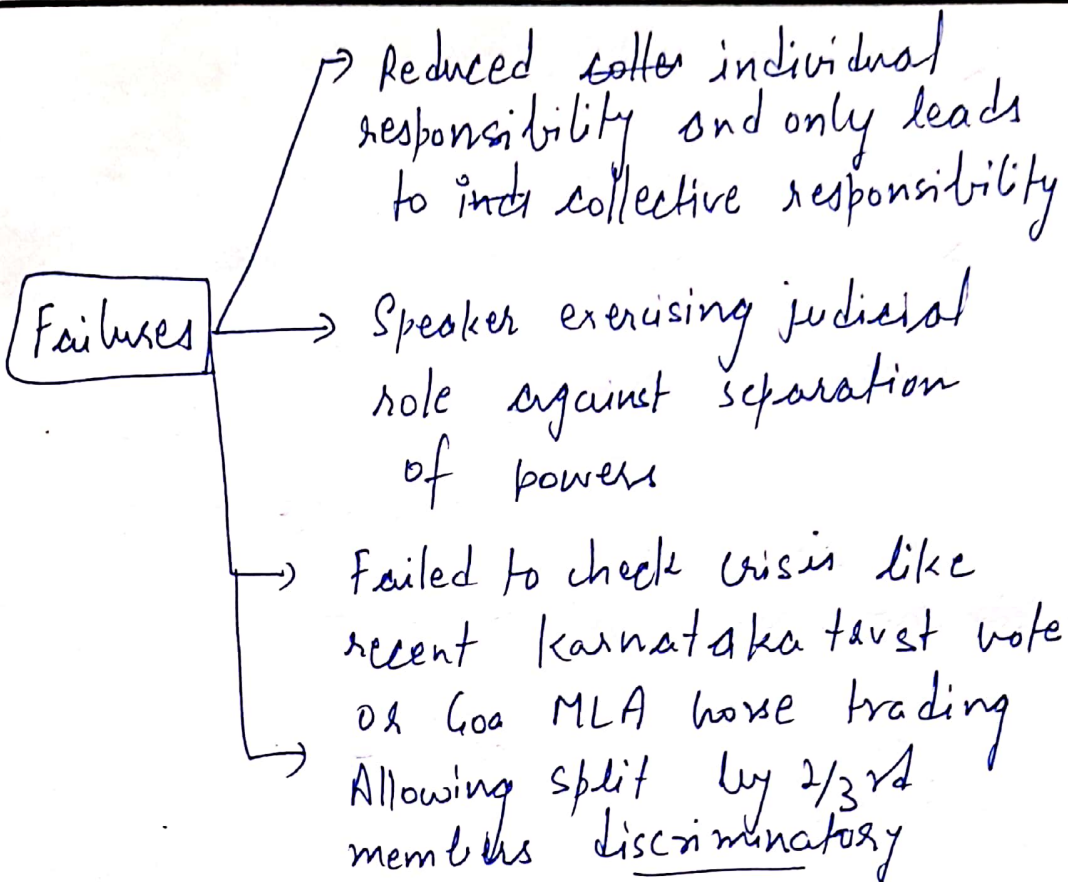 Reduced individual
responsibility and only leads
to collective responsibility
Failures
Speaker exercising judicial
role against separation
of powers
Failed to check crisis like
recent Karnataka trust vote
or Goa MLA horse trading
Allowing split by 2/3rd
members discriminatory